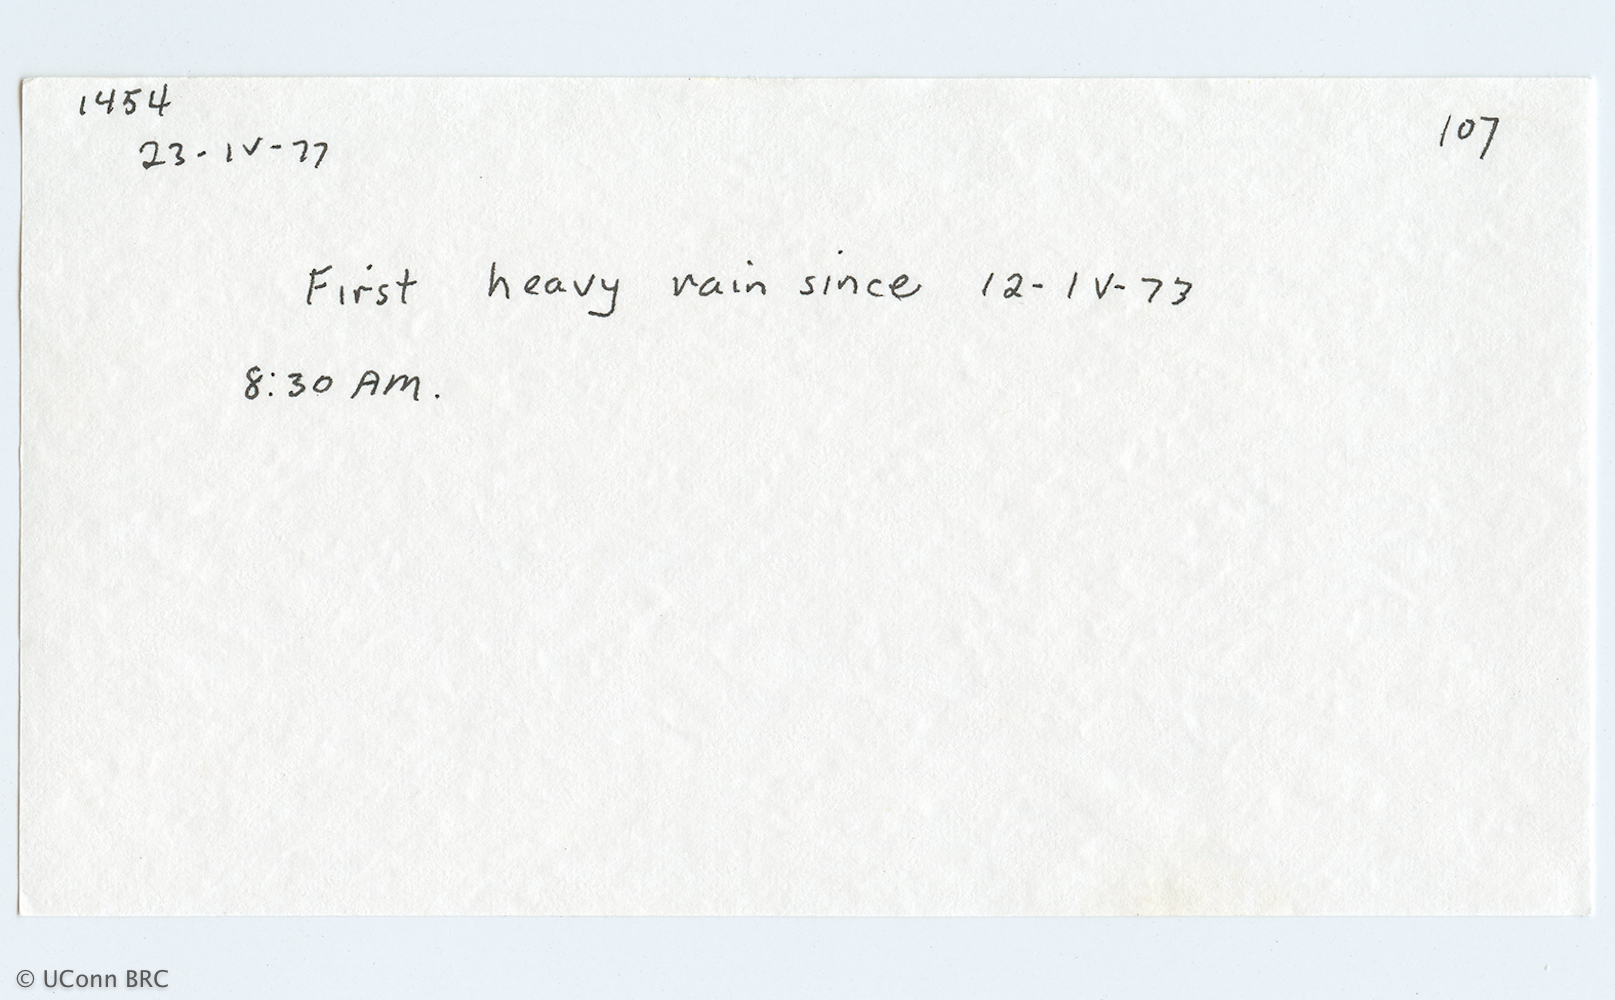 1454
107
23-IV-77
First heavy rain since 12-IV-73
8:30 AM.
© UConn BRC